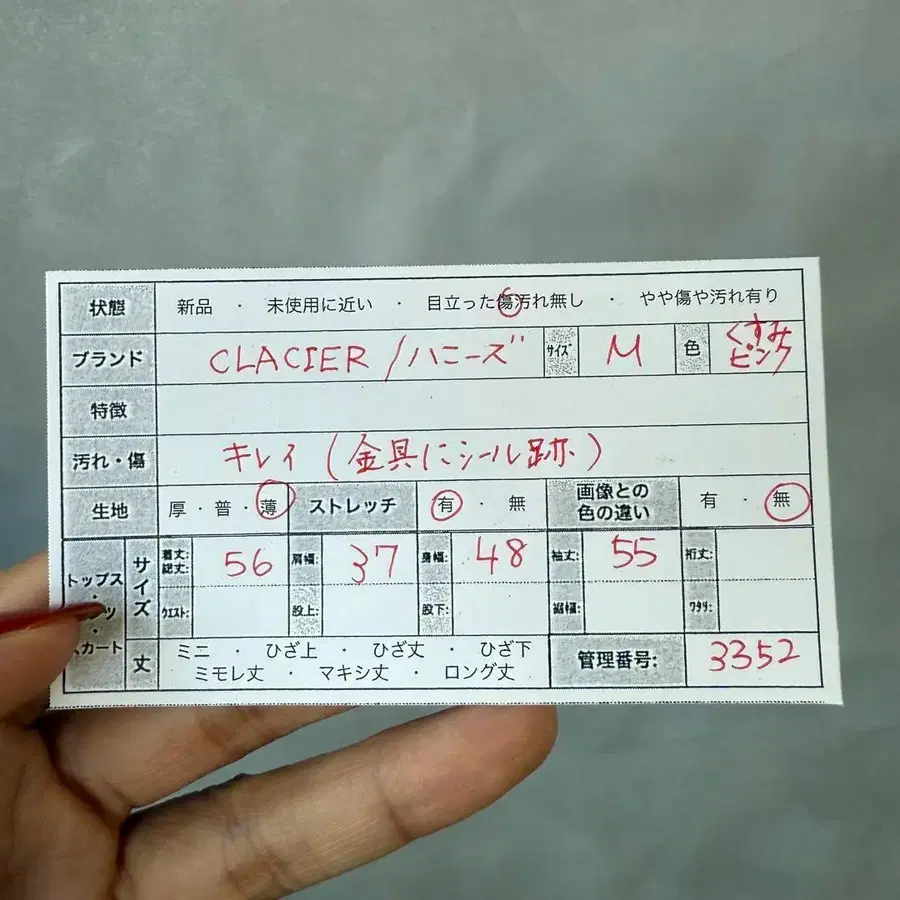 状態 新品 ・ 未使用に近い ・ 目立った傷汚れ無し ・ やや傷や汚れ有り
ブランド CLACIER / ハニーズ サイズ M 色 くすみピンク
特徴
汚れ・傷 キレイ (金具にシール跡)
生地 厚・普・薄 ストレッチ 有 ・ 無 画像との色の違い 有 ・ 無
トップス・ ・ カート サイズ 着丈:総丈: 56 肩幅: 37 身幅: 48 袖丈: 55 裄丈:
ウエスト: 股上: 股下: 裾幅: ワタリ:
丈 ミニ ・ ひざ上 ・ ひざ丈 ・ ひざ下
ミモレ丈 ・ マキシ丈 ・ ロング丈
管理番号: 3352